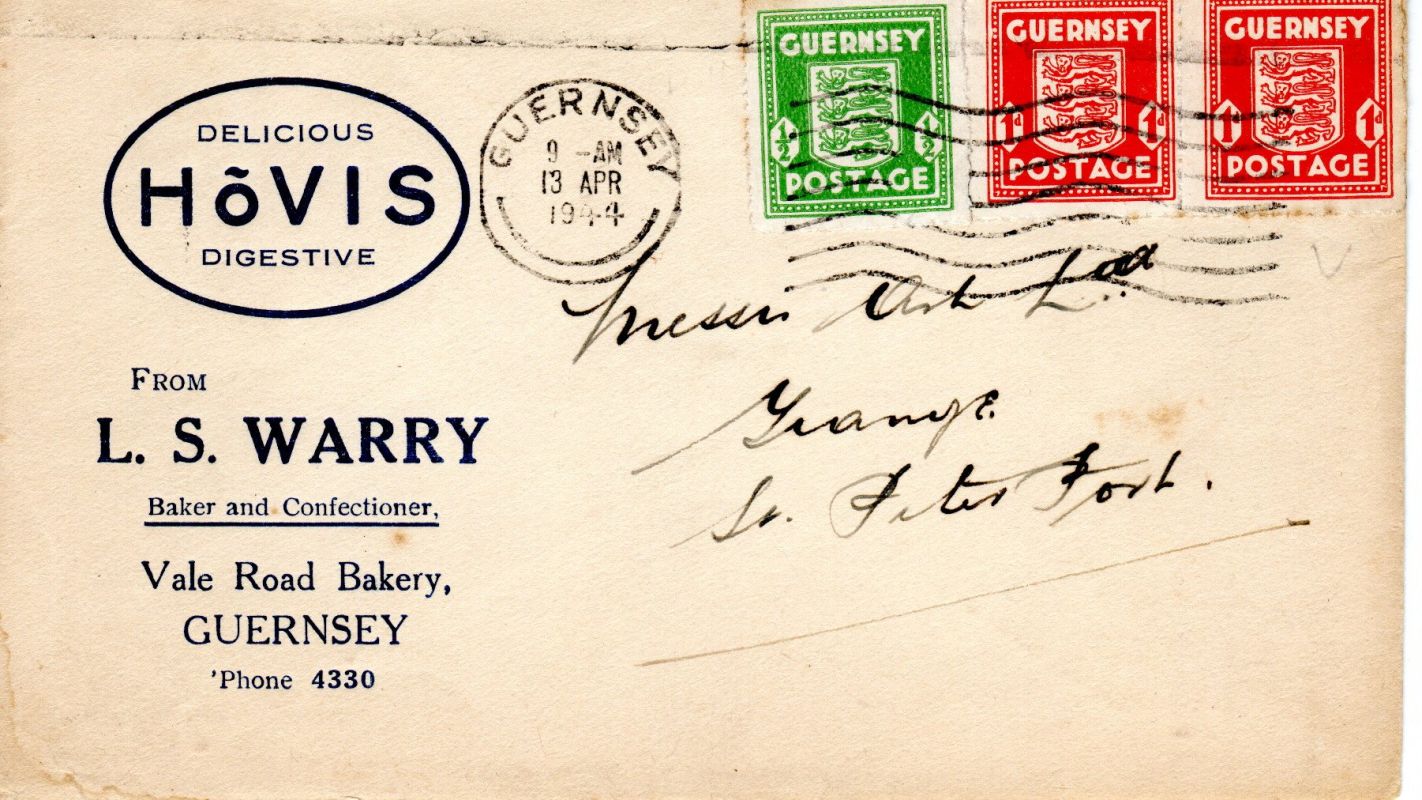 DELICIOUS
HõVIS
DIGESTIVE
FROM
L. S. WARRY
Baker and Confectioner,
Vale Road Bakery,
GUERNSEY
'Phone 4330
GUERNSEY
9 -AM
13 APR
1944
GUERNSEY
½ ½
POSTAGE
GUERNSEY
1d 1d
POSTAGE
GUERNSEY
1d 1d
POSTAGE
Messrs
Grange
St. Peter Port.